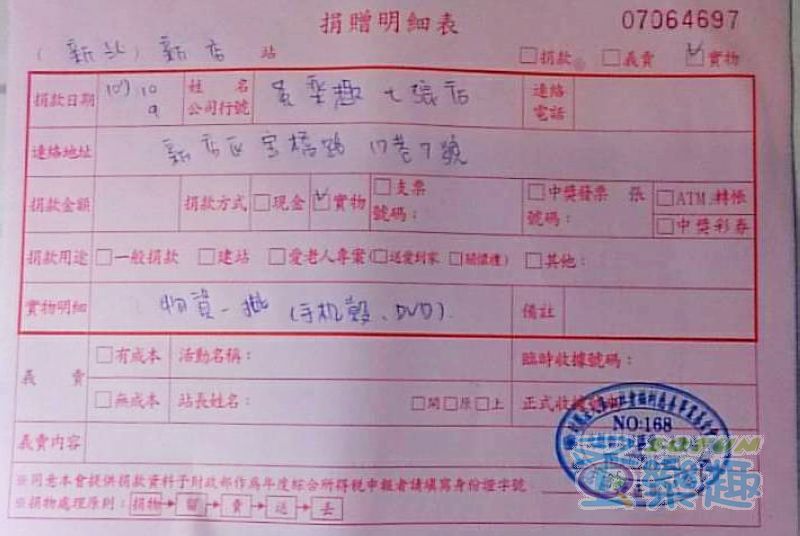 捐贈明細表 07064697
(新北) 新店 站 □捐款 □義賣 ☑實物
捐款日期 107 10 9 姓名 公司行號 七張店 連絡電話
連絡地址 新店區寶橋路17巷7號
捐款金額 捐款方式 □現金 ☑實物 □支票號碼: □中獎發票 張 號碼: □ATM.轉帳 □中獎彩券
捐款用途 □一般捐款 □建站 □愛老人專案(□送愛到家 □關懷禮) □其他:
實物明細 物資一批 (手机殼、DVD). 備註
義賣 □有成本 活動名稱: 臨時收據號碼:
□無成本 站長姓名: □開□原□上 正式收據
NO:168
義賣內容
※同意本會提供捐款資料予財政部作為年度綜合所得稅申報者請填寫身份證字號
※捐物處理原則:捐物→留→賣→送→丟
SOFUN
樂趣